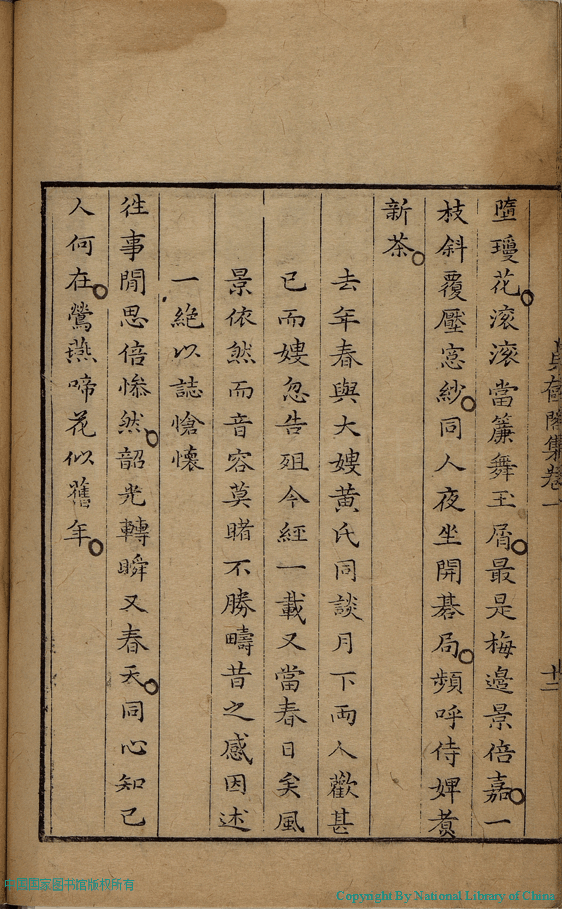 墮瓊花滚滚當簾舞玉屑最是梅邊景倍嘉一
枝斜覆壓窓紗同人夜坐開碁局頻呼侍婢煑
新茶
去年春與大嫂黃氏同談月下兩人歡甚
已而嫂忽告殂今經一載又當春日矣風
景依然而音容莫睹不勝疇昔之感因述
一絶以誌愴懷
徃事閒思倍慘然韶光轉瞬又春天同心知已
人何在鶯燕啼花似舊年
集卷一
十二
中国国家图书馆版权所有
Copyright By National Library of China